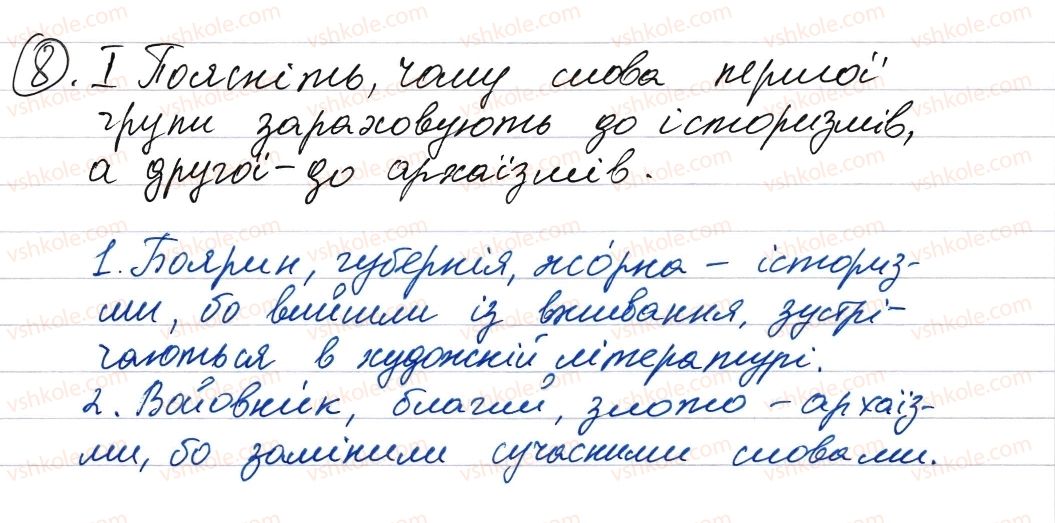 8. І Поясніть, чому слова першої
групи зараховують до історизмів,
а другої - до архаїзмів.
1. Боярин, губернія, жо́рна - істориз-
ми, бо вийшли із вживання, зустрі-
чаються в художній літературі.
2. Войовник, благий, злото - архаїз-
ми, бо замінили сучасними словами.